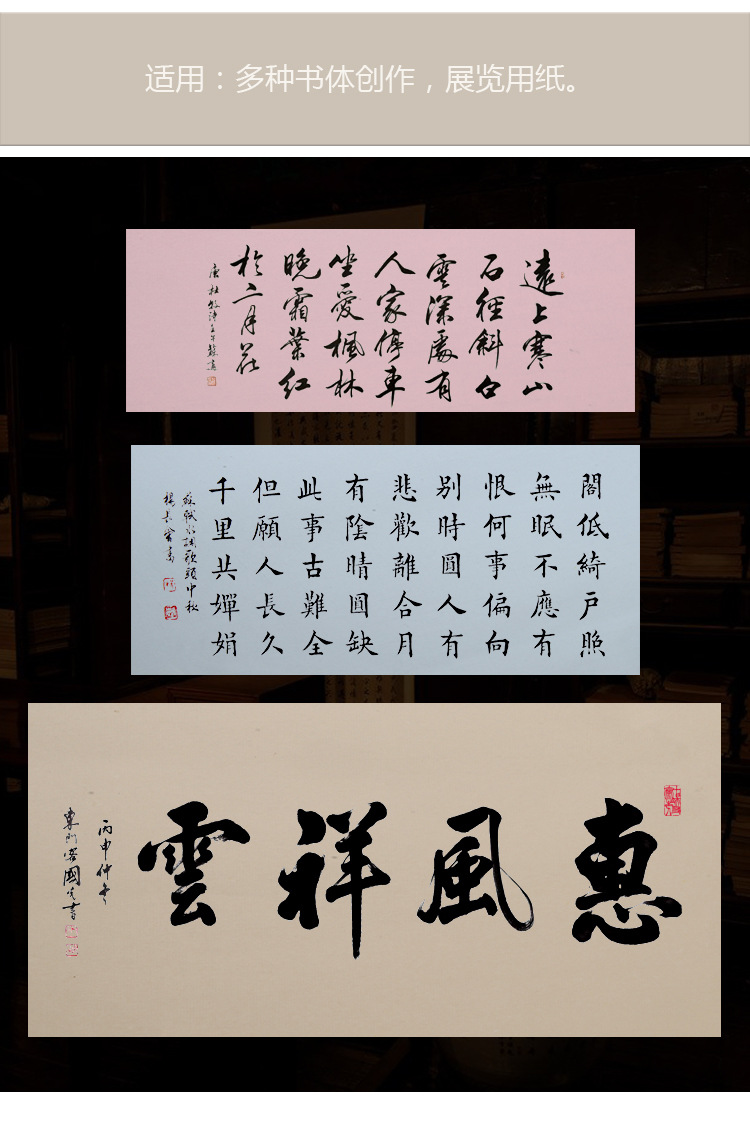 适用：多种书体创作，展览用纸。
遠上寒山
石徑斜白
雲深處有
人家停車
坐愛楓林
晚霜葉紅
於二月花
唐杜牧詩
閣低綺戶照
無眠不應有
恨何事偏向
别時圓人有
悲歡離合月
有陰晴圓缺
此事古難全
但願人長久
千里共嬋娟
蘇軾水調歌頭中秋
惠風祥雲
丙申仲冬